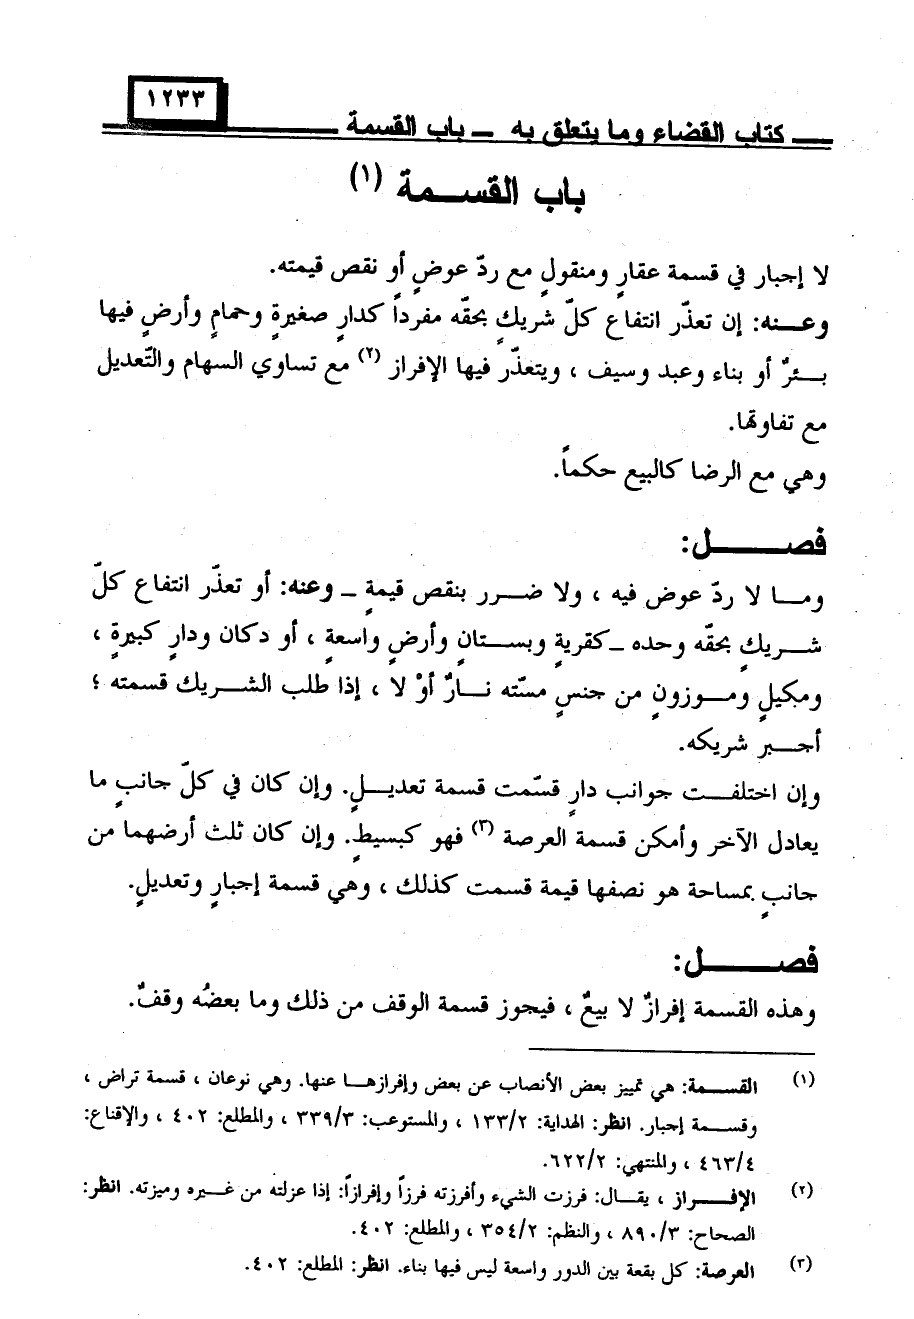 ١٢٣٣
كتاب القضاء وما يتعلق به ــ باب القسمة
باب القســمة (١)
لا إجبار في قسمة عقارٍ ومنقولٍ مع ردّ عوضٍ أو نقص قيمته.
وعــنه: إن تعذّر انتفاع كلّ شريكٍ بحقّه مفرداً كدارٍ صغيرةٍ وحمامٍ وأرضٍ فيها
بــئرٌ أو بناء وعبد وسيف ، ويتعذّر فيها الإفراز (٢) مع تساوي السهام والتّعديل
مع تفاوتها.
وهي مع الرضا كالبيع حكماً.
فصــــل:
ومــا لا ردّ عوض فيه ، ولا ضــرر بنقص قيمةٍ ــ وعنه: أو تعذّر انتفاع كلّ
شــريكٍ بحقّه وحده ــ كقريةٍ وبســتانٍ وأرضٍ واسعةٍ ، أو دكان ودارٍ كبيرةٍ ،
ومكيلٍ ومــوزونٍ من جنسٍ مسّته نــارٌ أوْ لا ، إذا طلب الشــريك قسمته ؛
أجــبر شريكه.
وإن اختلفــت جوانب دارٍ قسّمت قسمة تعديــلٍ. وإن كان في كلّ جانبٍ ما
يعادل الآخر وأمكن قسمة العرصة (٣) فهو كبسيطٍ. وإن كان ثلث أرضهما من
جانبٍ بمساحة هو نصفها قيمة قسمت كذلك ، وهي قسمة إجبارٍ وتعديلٍ.
فصــــل:
وهذه القسمة إفرازٌ لا بيعٌ ، فيجوز قسمة الوقف من ذلك وما بعضُه وقفٌ.
(١) القســمة: هي تمييز بعض الأنصاب عن بعض وإفرازهــا عنها. وهي نوعان ، قسمة تراض ،
وقســمة إجبار. انظر: الهداية: ١٣٣/٢ ، والمستوعب: ٣٣٩/٣ ، والمطلع: ٤٠٢ ، والإقناع:
٤٦٣/٤ ، والمنتهي: ٦٢٢/٢.
(٢) الإفــراز ، يقــال: فرزت الشيء وأفرزته فرزاً وإفرازاً: إذا عزلته من غــيره وميزته. انظر:
الصحاح: ٨٩٠/٣ ، والنظم: ٣٥٤/٢ ، والمطلع: ٤٠٢.
(٣) العرصة: كل بقعة بين الدور واسعة ليس فيها بناء. انظر: المطلع: ٤٠٢.